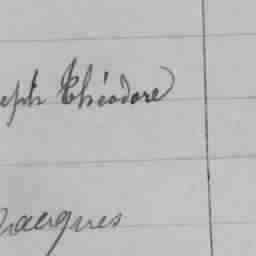 eph Théodore
Jacques